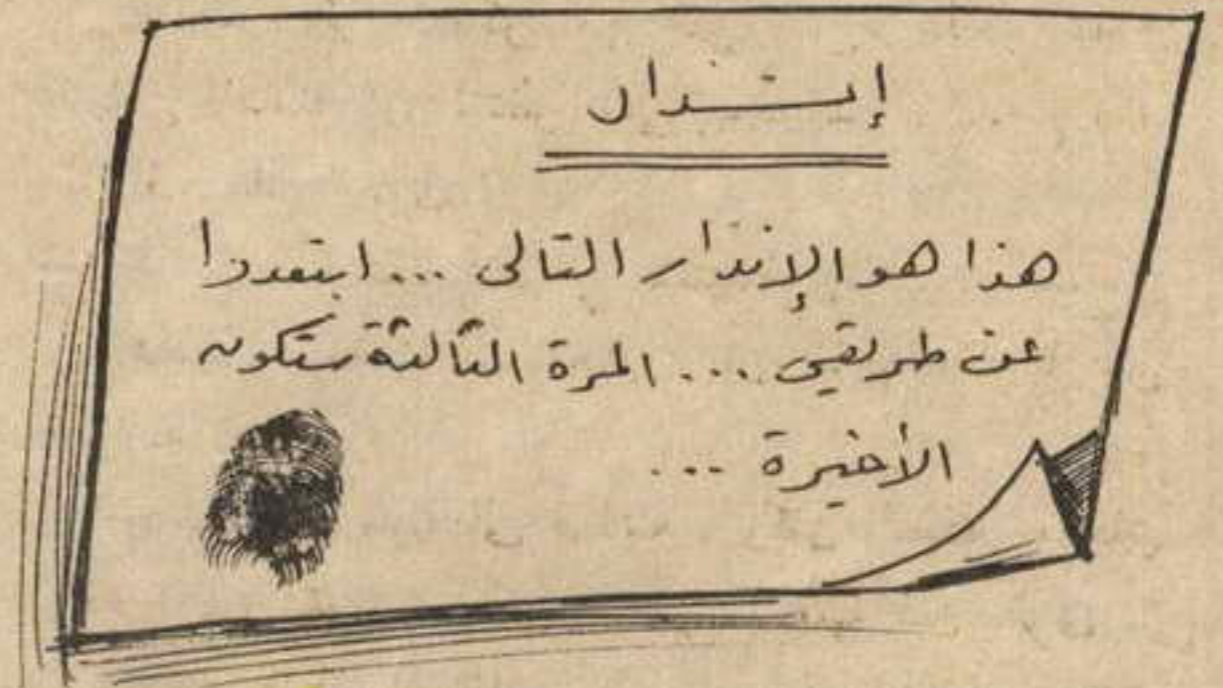 إنذار
هذا هو الإنذار التالى ... ابتعدوا
عن طريقي ... المرة الثالثة ستكون
الأخيرة ...